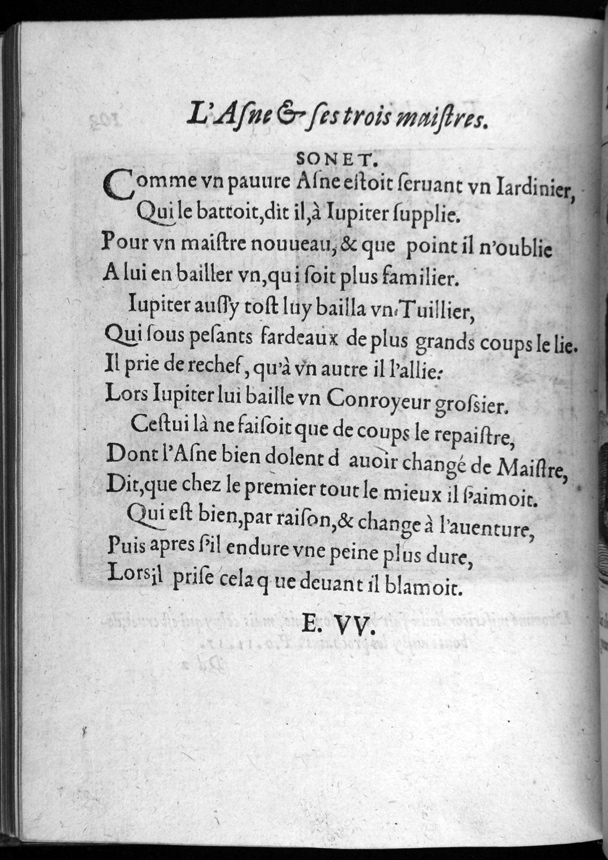 L'Aſne & ſes trois maiſtres.
SONET.
Comme vn pauure Aſne eſtoit ſeruant vn Iardinier,
Qui le battoit, dit il, à Iupiter ſupplie.
Pour vn maiſtre nouueau, & que point il n'oublie
A lui en bailler vn, qui ſoit plus familier.
Iupiter auſſy toſt luy bailla vn Tuillier,
Qui ſous peſants fardeaux de plus grands coups le lie.
Il prie de rechef, qu'à vn autre il l'allie:
Lors Iupiter lui baille vn Conroyeur groſſier.
Ceſtui là ne faiſoit que de coups le repaiſtre,
Dont l'Aſne bien dolent d auoir changé de Maiſtre,
Dit, que chez le premier tout le mieux il ſ'aimoit.
Qui eſt bien, par raiſon, & change à l'auenture,
Puis apres ſ'il endure vne peine plus dure,
Lors il priſe cela que deuant il blamoit.
E. VV.